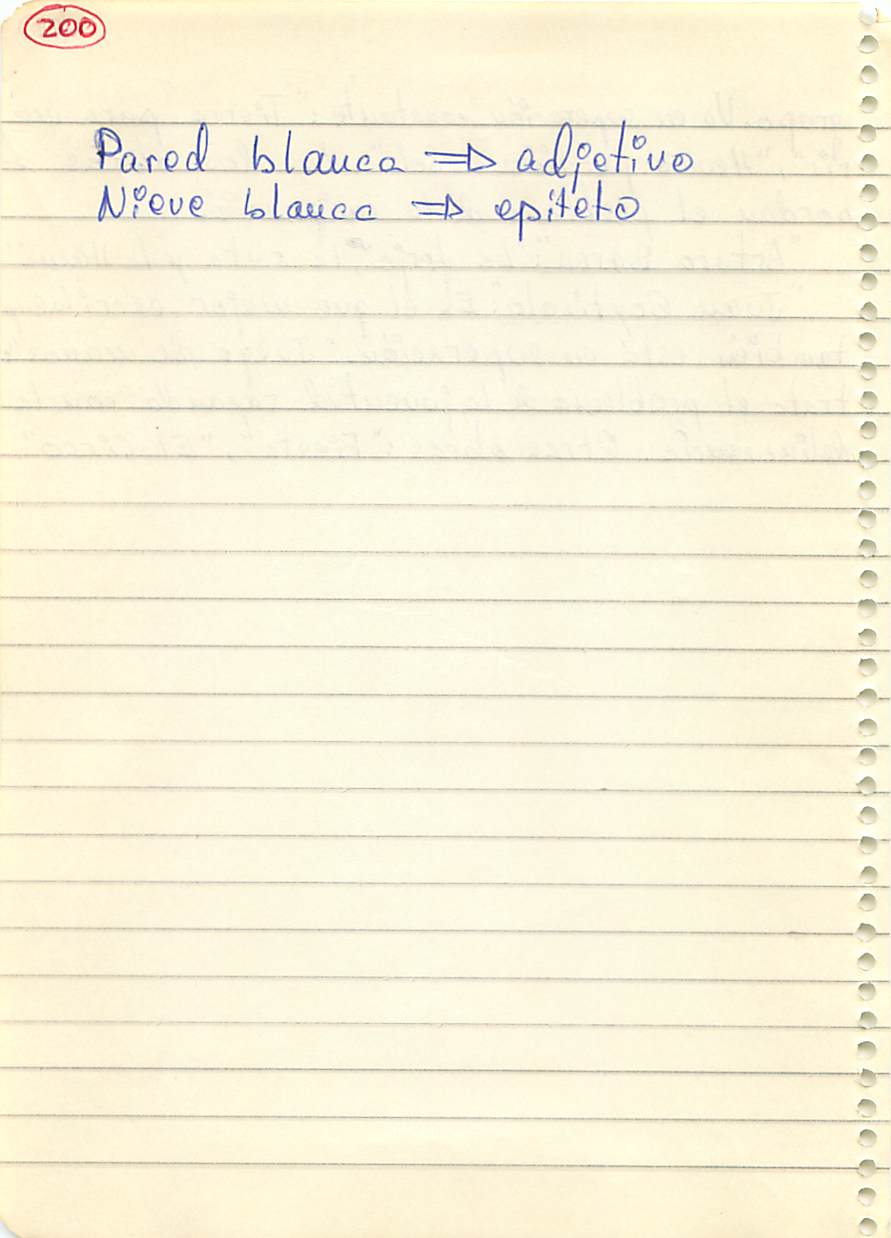 200
Pared blanca ⇒ adjetivo
Nieve blanca ⇒ epíteto